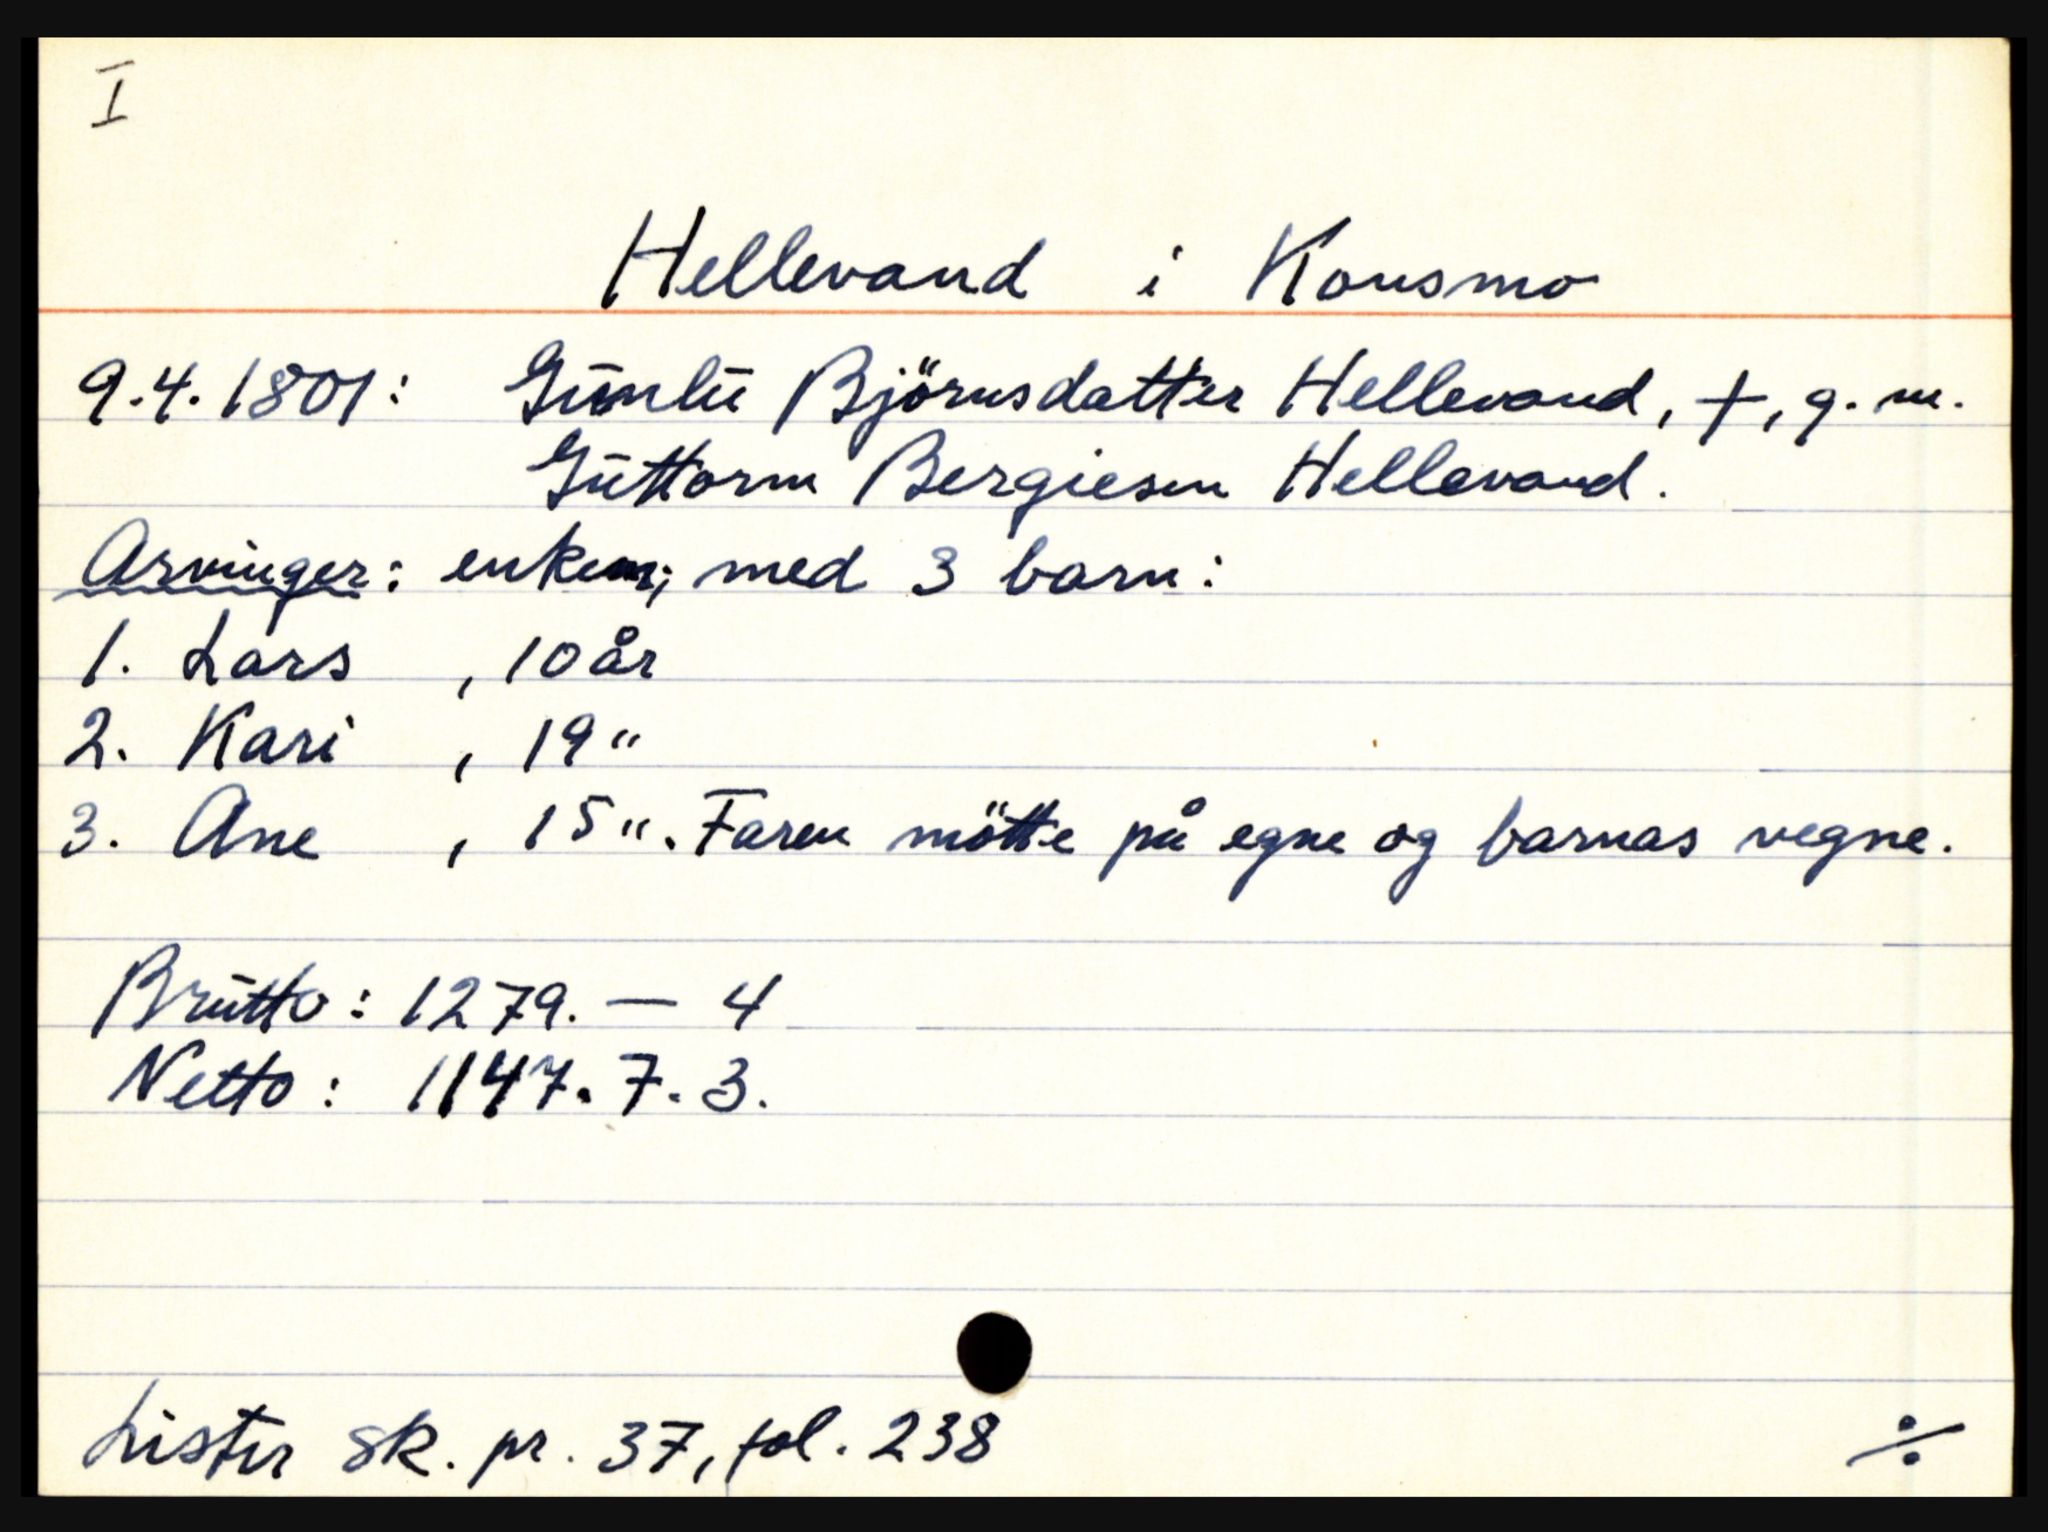 I
Hellevand i Konsmo
9.4.1801: Gunlü Björnsdatter Hellevand, +, g. m.
Guttorm Bergiesen Hellevand.
Arvinger: enkem; med 3 barn:
1. Lars , 10 år
2. Kari , 19 "
3. Ane , 15 ". Faren mötte på egne og barnas vegne.
Brutto: 1279. — 4
Netto: 1147. 7. 3.
Lister sk. pr. 37, fol. 238 ÷